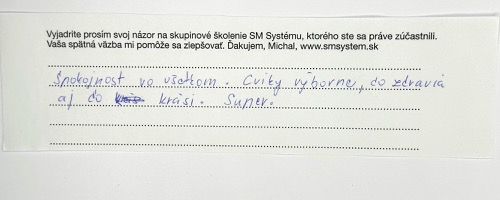 Vyjadrite prosím svoj názor na skupinové školenie SM Systému, ktorého ste sa práve zúčastnili.
Vaša spätná väzba mi pomôže sa zlepšovať. Ďakujem, Michal, www.smsystem.sk
Spokojnosť vo všetkom. Cviky výborne, do zdravia
aj do krási. Super.